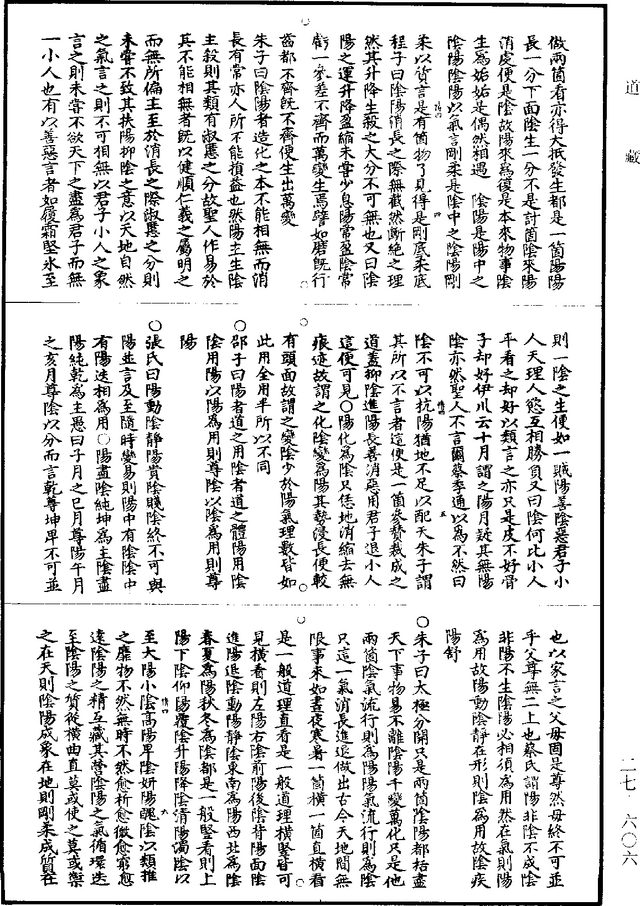 道藏
做兩箇看亦得大抵發生都是一箇陽陽
長一分下面陰生一分不是討箇陰來陽
消處便是陰故陽來為復是本來物事陰
生為姤姤是偶然相遇　陰陽是陽中之
陰陽陰陽以氣言剛柔是陰中之陰陽剛
柔以質言是有箇物了見得是剛底柔底
程子曰陰陽消長之際無截然斷絕之理
然其升降生殺之大分不可無也又曰陰
陽之運升降盈縮未嘗少息陽常盈陰常
虧一參差不齊而萬變生焉譬如磨既行
齒都不齊既不齊便生出萬變
朱子曰陰陽者造化之本不能相無而消
長有常亦人所不能損益也然陽主生陰
主殺則其類有淑慝之分故聖人作易於
其不能相無者既以健順仁義之屬明之
而無所偏主至於消長之際淑慝之分則
未嘗不致其扶陽抑陰之意以天地自然
之氣言之則不可相無以君子小人之象
言之則未嘗不欲天下之盡為君子而無
一小人也有以善惡言者如履霜堅氷至
則一陰之生便如一賊陽善陰惡君子小
人天理人慾互相勝負又曰陰何比小人
平看之却好以類言之亦只是皮不好骨
子却好伊川云十月謂之陽月疑其無陽
陰亦然聖人不言爾蔡季通以為不然曰
陰不可以抗陽猶地不足以配天朱子謂
其所以不言者這便是一箇參贊裁成之
道蓋抑陰進陽長善消惡用君子退小人
這便可見○陽化為陰只恁地消縮去無
痕迹故謂之化陰變為陽其勢浸長便較
有頭面故謂之變陰少於陽氣理數皆如
此用全用半所以不同
○邵子曰陽者道之用陰者道之體陽用陰
陰用陽以陽為用則尊陰以陰為用則尊
陽
○張氏曰陽動陰靜陽貴陰賤陰終不可與
陽並言及至隨時變易則陽中有陰陰中
有陽迭相為用○陽盡陰純坤為主陰盡
陽純乾為主愚曰子月之巳月尊陽午月
之亥月尊陰以分而言乾尊坤卑不可並
也以家言之父母固是尊然母終不可並
乎父尊無二上也蔡氏謂陽非陰不成陰
非陽不生陰陽必相須為用然在氣則陽
為用故陽動陰靜在形則陰為用故陰疾
陽舒
○朱子曰太極分開只是兩箇陰陽都括盡
天下事物易不離陰陽千變萬化只是他
兩箇陰氣流行則為陽陽氣流行則為陰
只這一氣消長進退做出古今天地間無
限事來如晝夜寒暑一箇橫一箇直橫看
是一般道理直看是一般道理橫竪皆可
見橫看則左陽右陰前陽後陰背陽面陰
進陽退陰動陽靜陰東南為陽西北為陰
春夏為陽秋冬為陰都是一般竪看則上
陽下陰仰陽覆陰升陽降陰清陽濁陰以
至大陽小陰高陽卑陰妍陽醜陰以類推
之靡物不然無時不然愈析愈微愈窮愈
達陰陽之精互藏其營陰陽之氣循環迭
至陰陽之質從橫曲直莫或使之莫或禦
之在天則陰陽成象在地則剛柔成質在
二七·六〇六